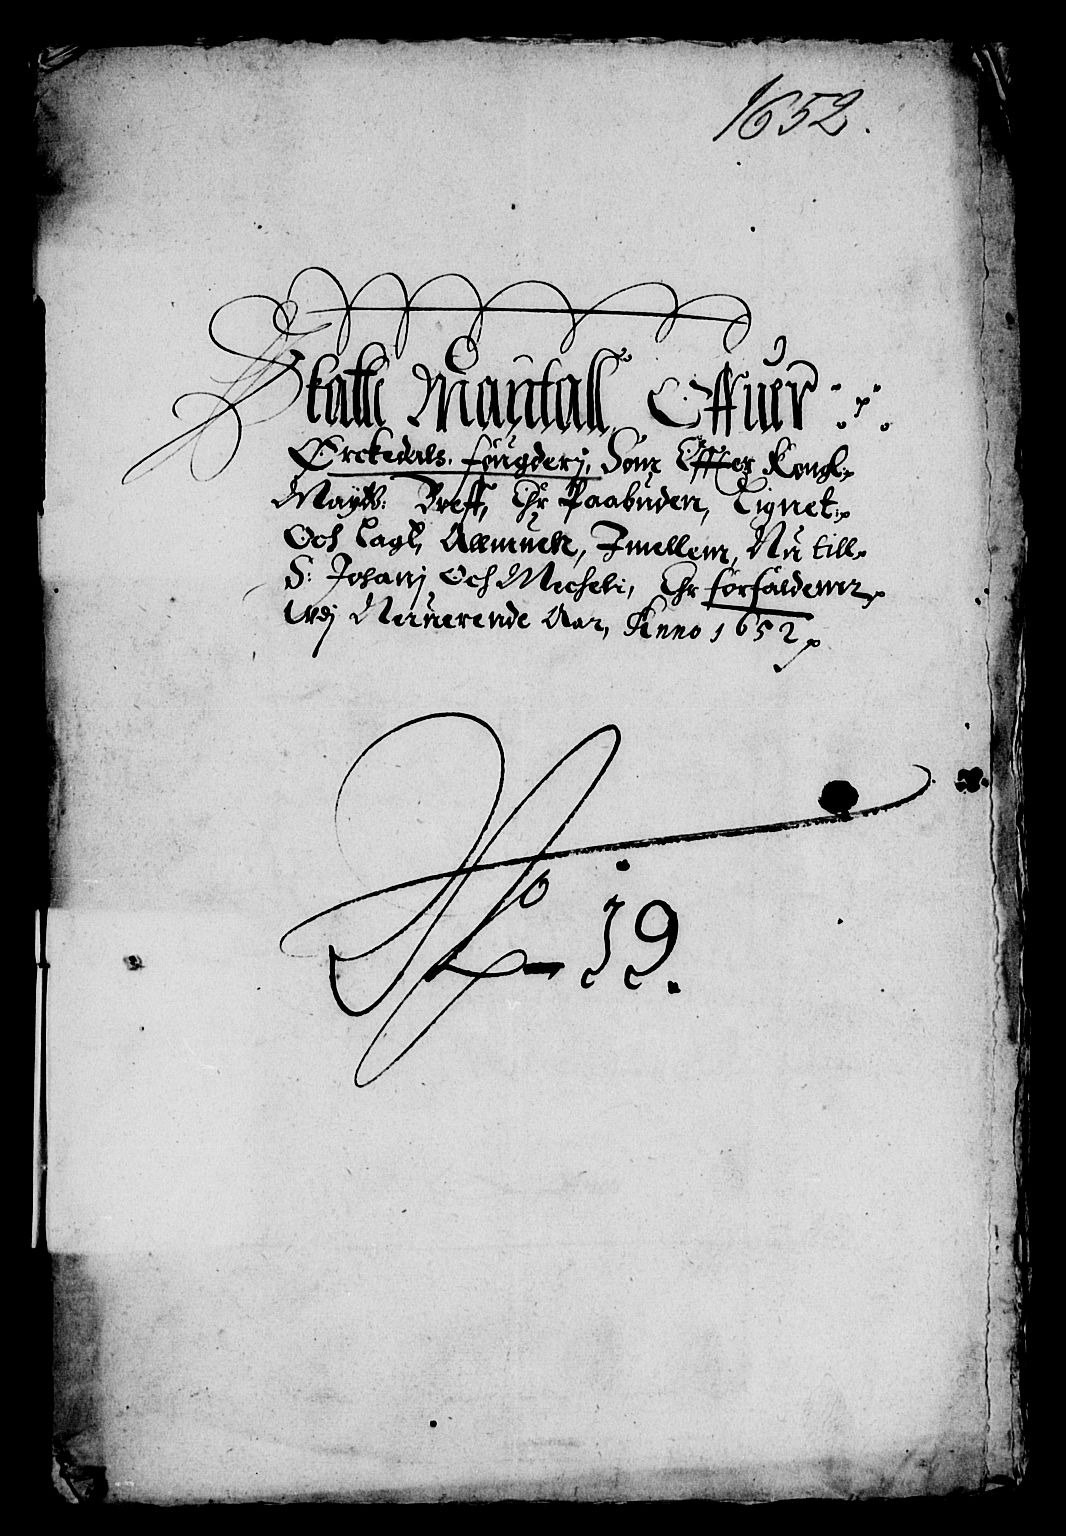 1652.
Skatte Mantall Offuer
Ørckedals fougderj, Som Effter Kongl:
Maytz: Breff, Er Paabuden, Lignet
Och Lagt, Allmuen, Imellem, Nu till
S: Johanj Och Michelj, Er forfaldenn
Udj Neruerende Aar, Anno 1652
No 19.